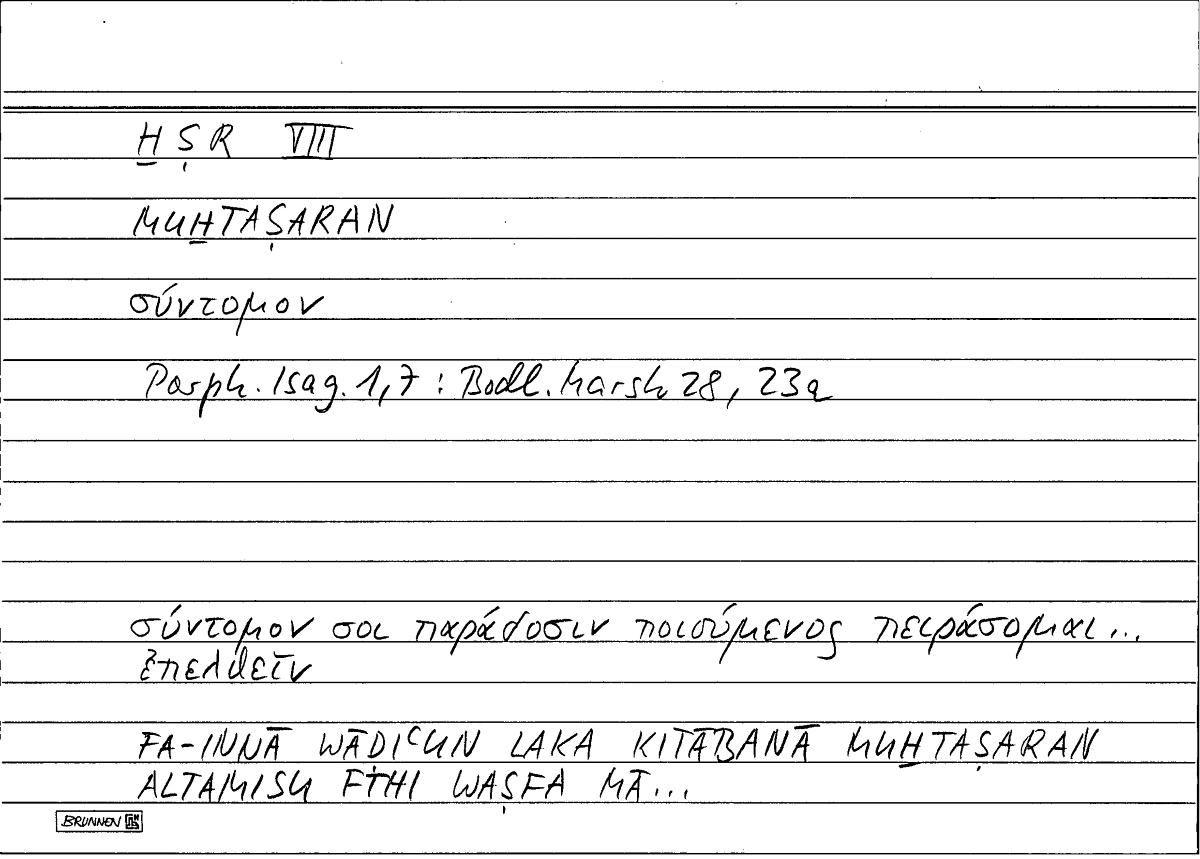 ḪṢR VIII
MUḪTAṢARAN
σύντομον
Porph. Isag. 1,7 : Bodl. Marsh 28, 23a
σύντομον σοι παράδοσιν ποιούμενος πειράσομαι...
ἐπελθεῖν
FA-INNĀ WĀDIʿUN LAKA KITĀBANĀ MUḪTAṢARAN
ALTAMISU FĪHI WAṢFA MĀ...
BRUNNEN